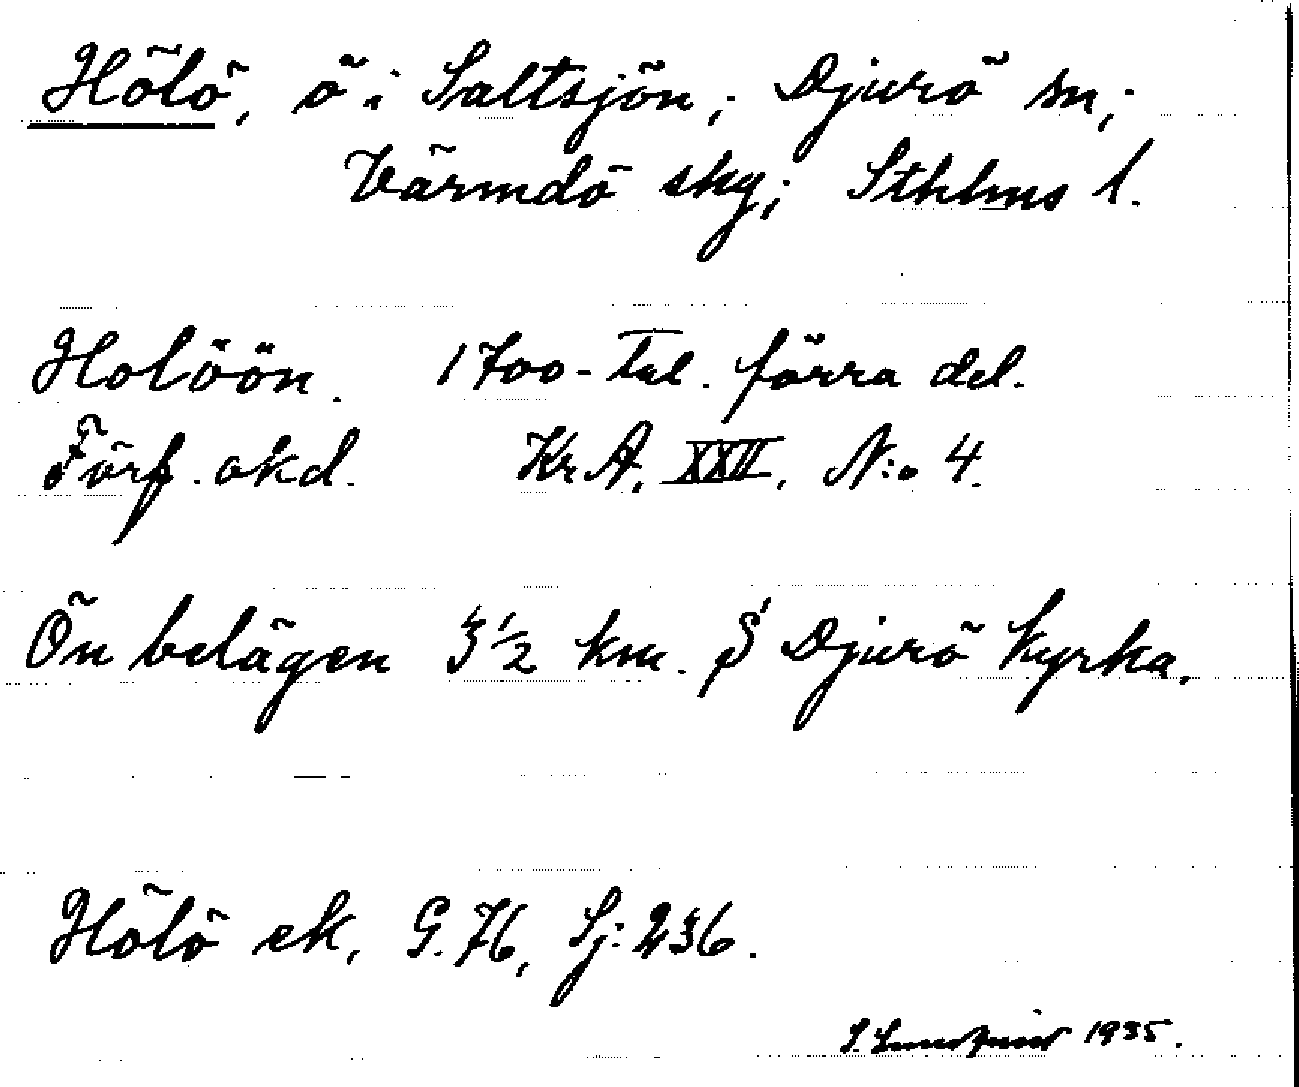 Hölö, ö i Saltsjön; Djurö sn;
Värmdö skg; Sthlms l.
Holöön. 1700-tal. förra del.
Förf. okd. Kr A. XXII, N:o 4.
Ön belägen 3 1/2 km. S Djurö kyrka.
Hölö ek, G. 76, Sj: 236.
S. 1935.